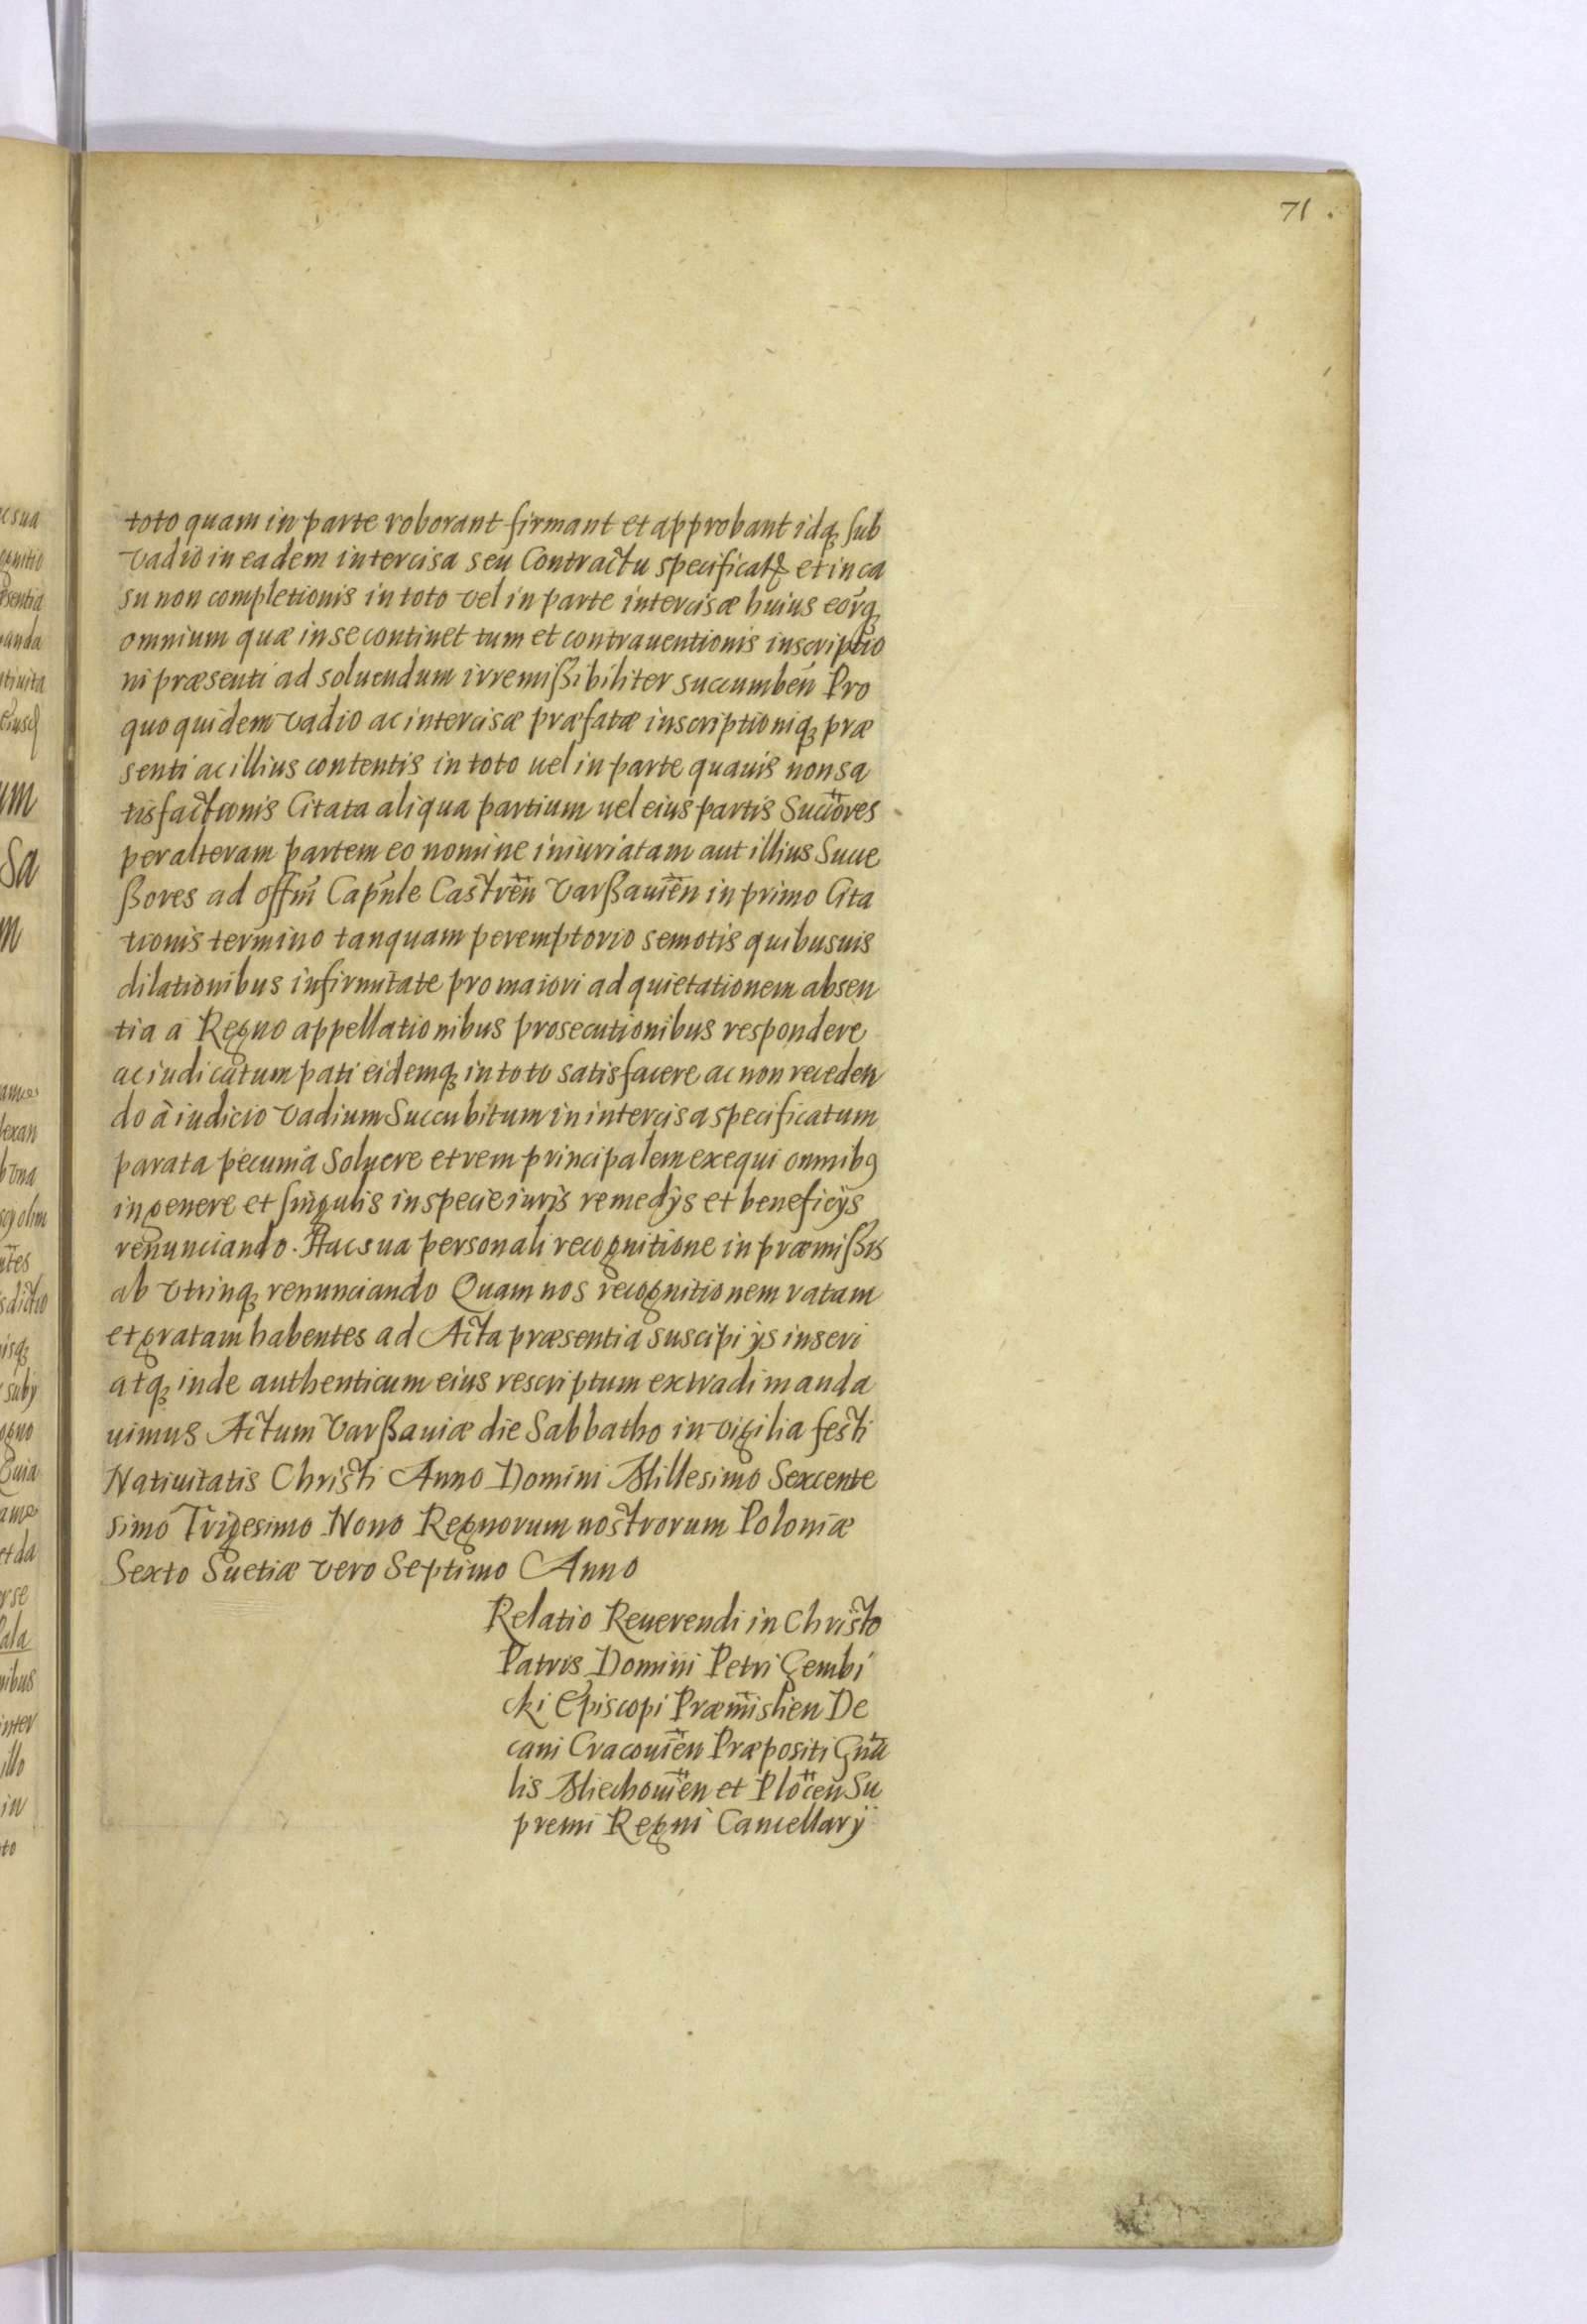 71.
toto quam in parte roborant firmant et approbant idq; sub
vadio in eadem intercisa seu Contractu specificatꝫ et in ca
su non completionis in toto vel in parte intercisæ huius eorq;
omnium quæ in se continet tum et contrauentionis inscriptio
ni præsenti ad soluendum irremißibiliter succumbeñ Pro
quo quidem vadio ac intercisæ præfatæ inscriptioniq; præ
senti ac illius contentis in toto uel in parte quauis non sa
tisfactionis Citata aliqua partium uel eius partis Succores
per alteram partem eo nomine iniuriatam aut illius Succe
ßores ad offm̃ Capñle Castreñ Varßauieñ in primo Cita
tionis termino tanquam peremptorio semotis quibusuis
dilationibus infirmitate pro maiori ad quietationem absen
tia a Regno appellationibus prosecutionibus respondere
ac iudicatum pati eidemq; in toto satisfacere ac non receden
do à iudicio vadium Succubitum in intercisa specificatum
parata pecunia Soluere et rem principalem exequi omnib9
in genere et singulis in specie iuris remedijs et beneficijs
renunciando. Hac sua personali recognitione in præmißis
ab vtrinq; renunciando Quam nos recognitionem ratam
et gratam habentes ad Acta præsentia suscipi ijs inseri
atq; inde authenticum eius rescriptum extradi manda
uimus Actum Varßauiæ die Sabbatho in vigilia festi
Natiuitatis Christi Anno Domini Millesimo Sexcente
simo Trigesimo Nono Regnorum nostrorum Poloniæ
Sexto Suetiæ vero Septimo Anno
Relatio Reuerendi in Christo
Patris Domini Petri Gembi
cki Episcopi Præmislien De
cani Cracouieñ Præpositi Gnã
lis Miechouieñ et Ploceñ Su
premi Regni Cancellarÿ